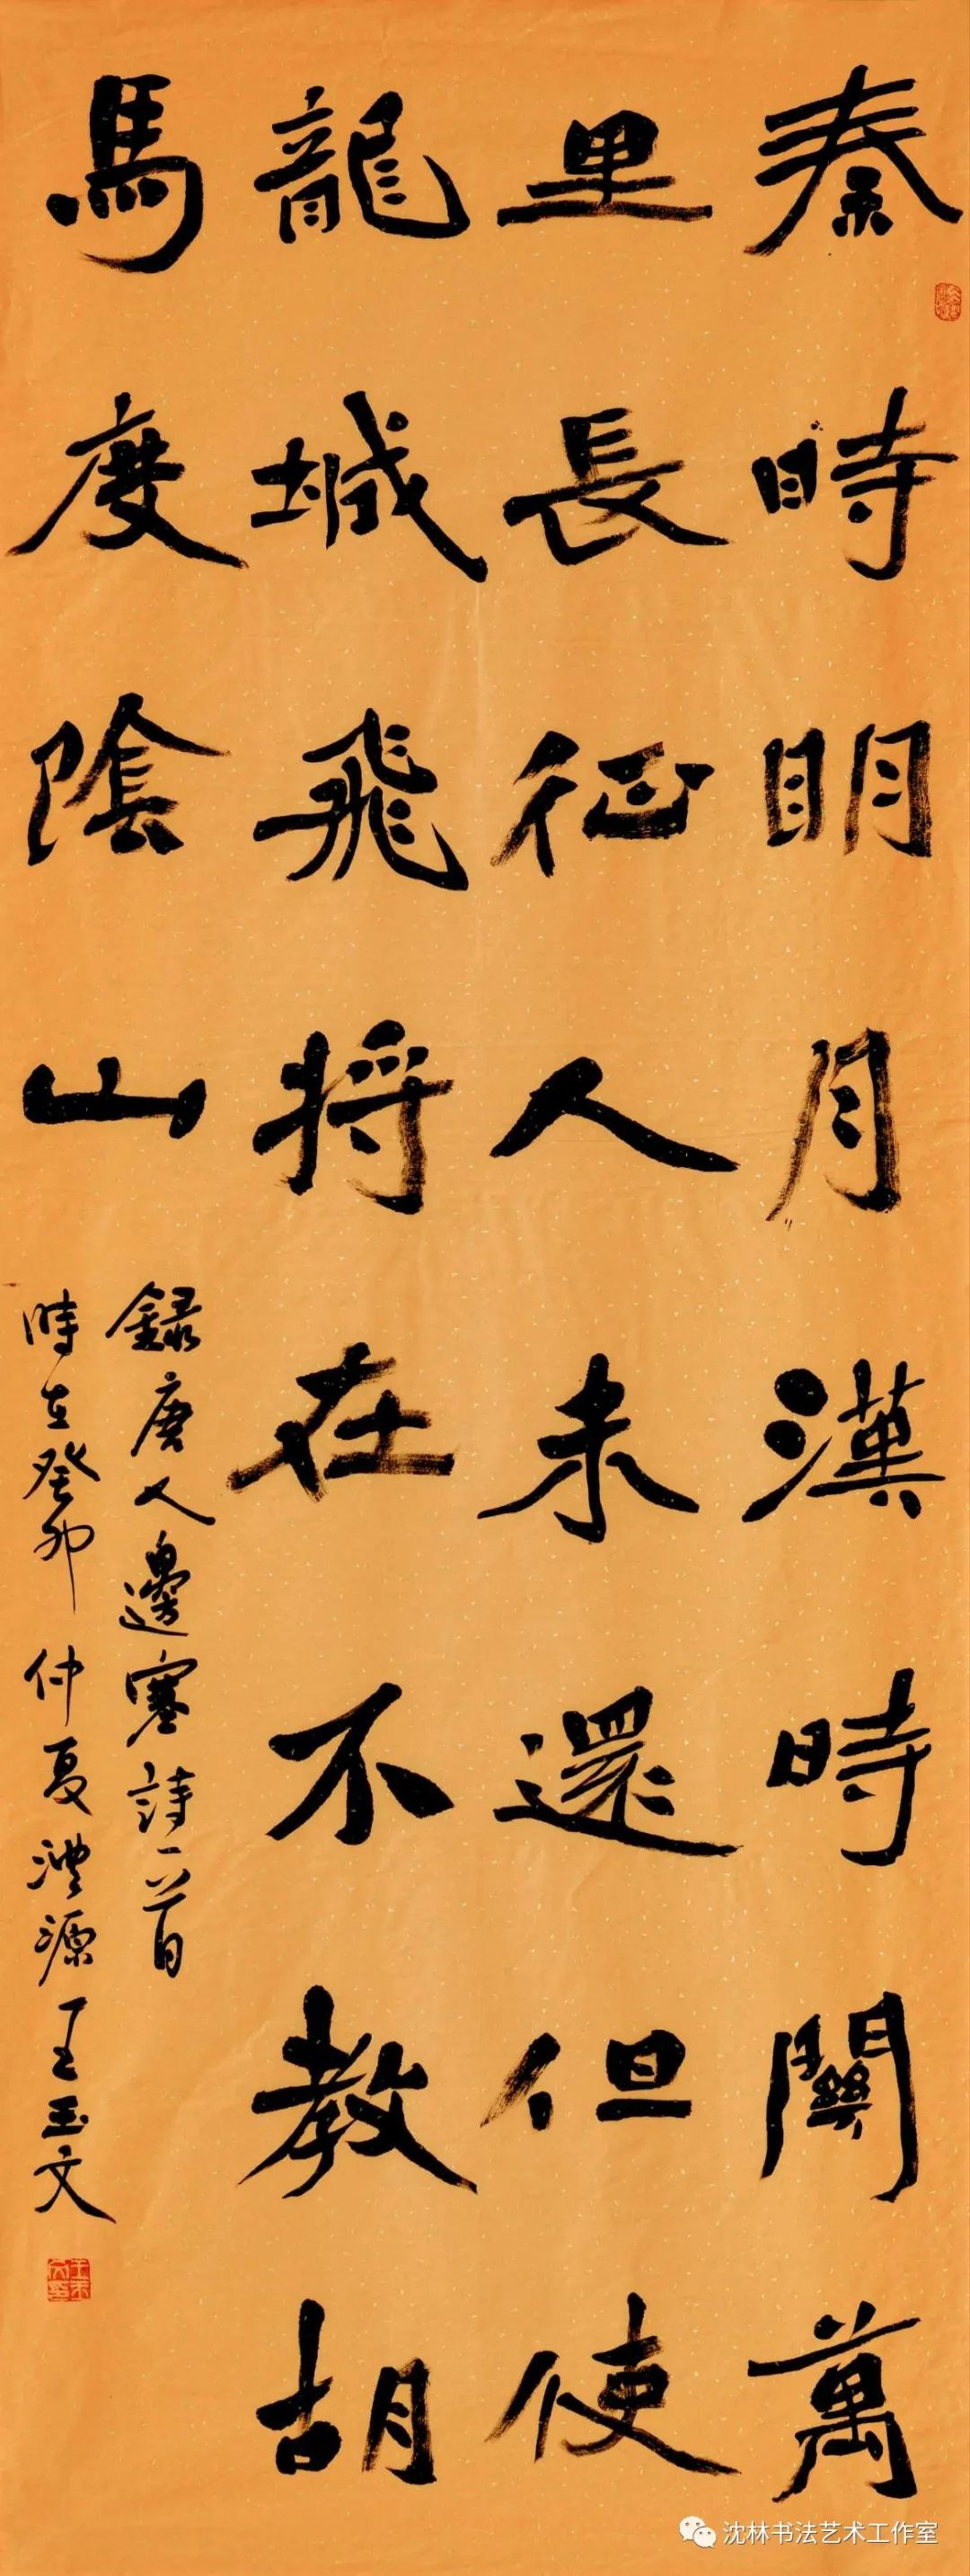 秦時明月漢時關萬
里長征人未還但使
龍城飛将在不教胡
馬度陰山
録唐人邊塞詩一首
時在癸卯仲夏澧源王玉文
沈林书法艺术工作室